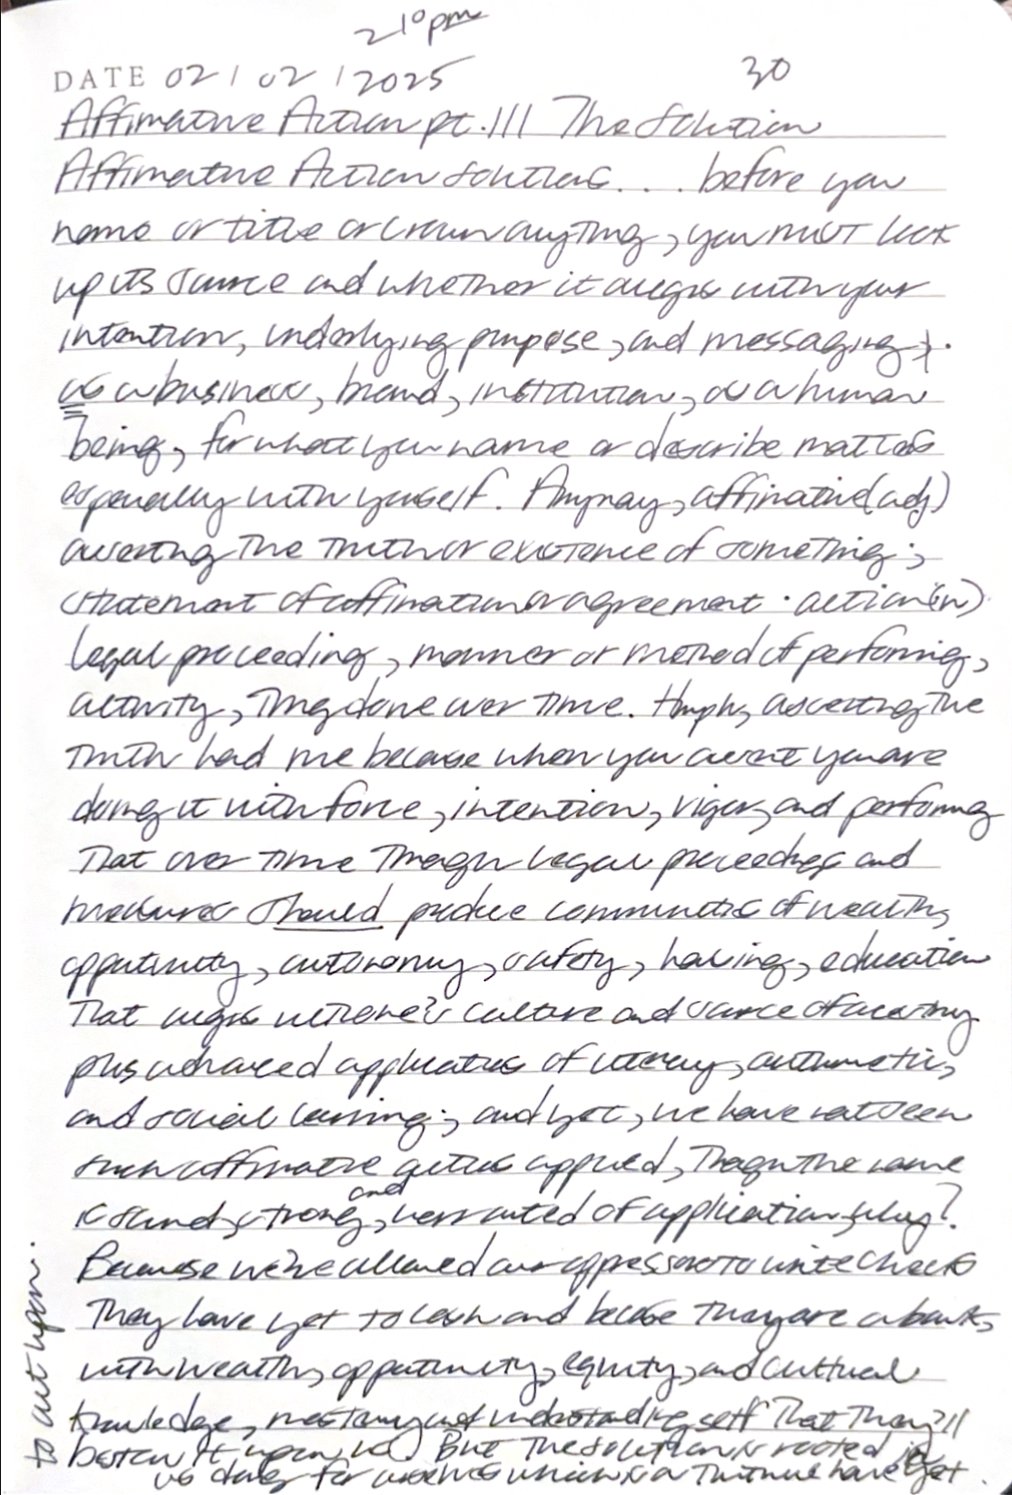 2 10 pm
DATE 02 / 02 / 2025 30
Affirmative Action pt. III The Solution
Affirmative Action solutions . . . . before you
name or title or crown anything, you must look
up its source and whether it aligns with your
intention, underlying purpose, and messaging;.
as a business, brand, institution, as a human
being, for what you name or describe matters
especially with yourself. Anyway, affirmative (adj)
asserting the truth or existence of something;
statement of affirmation or agreement · action (n)
legal proceeding, manner or method of performing,
activity, thing done over time. Humph, asserting the
truth had me because when you assert you are
doing it with force, intention, vigor, and performing
that over time through legal proceedings and
measures should produce communities of wealth,
opportunity, autonomy, safety, housing, education
that aligns with one's culture and source of
plus advanced applications of literacy, arithmetic,
and social learning; and yet, we have not seen
such affirmative actions applied, though the name
is sound, strong, and warranted of application, why?
Because we've allowed our oppressor to write checks
they have yet to cash and because they are a bank,
with wealth, opportunity, equity, and cultural
knowledge, mastery and understanding self that they'll
bestow it upon us. But the solution is rooted in
us doing for ourselves which is a truth we have yet
to act upon.